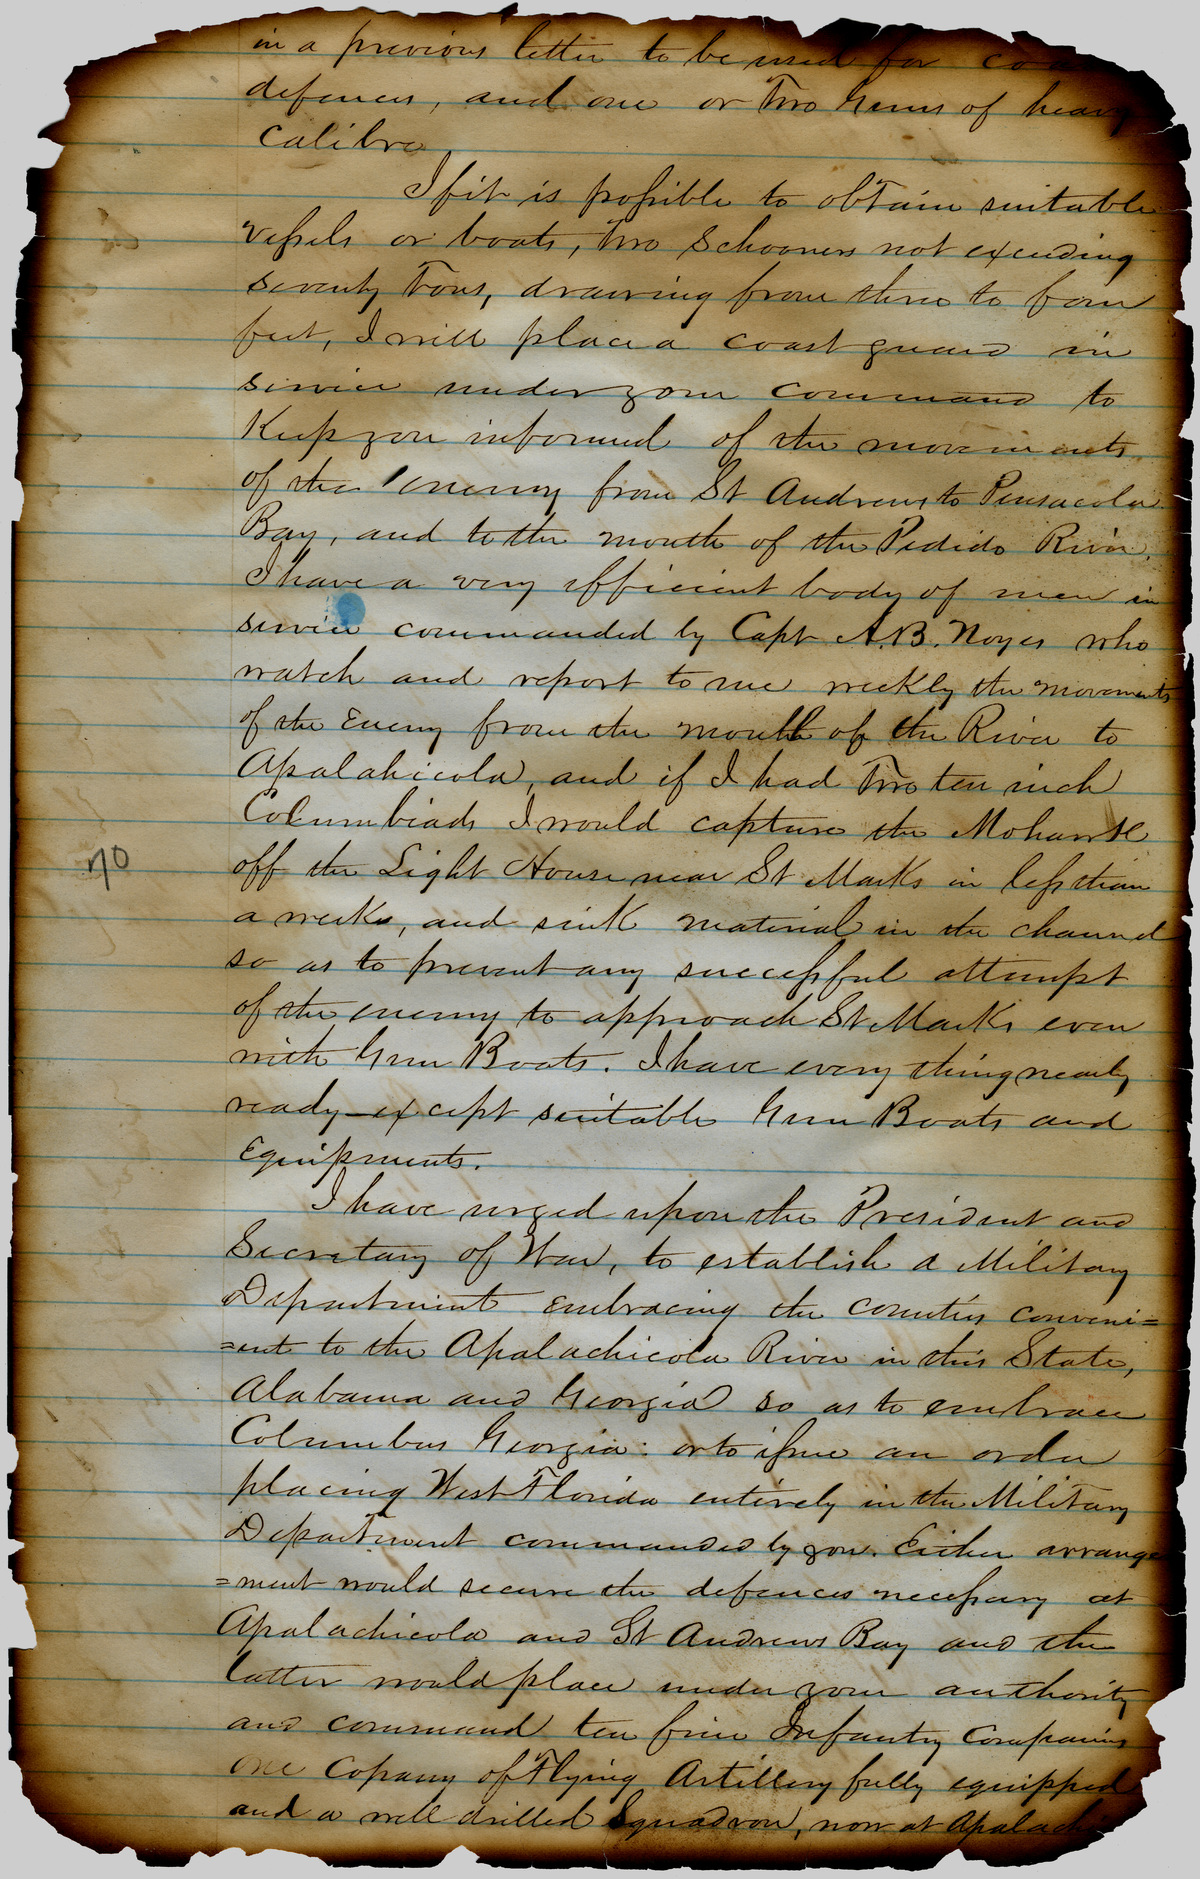 in a previous letter to be used for
defences, and one or Two Guns of heavy
Calibre
If it is possible to obtain suitable
vessels or boats, Two Schooners not exceeding
seventy Tons, drawing from three to four
feet, I will place a coast guard in
service under your command to
Keep you informed of the movements
of the enemy from St Andrews to Pensacola
Bay, and to the mouth of the Pedido River.
I have a very efficient body of men in
service commanded by Capt A.B. Noyes who
watch and report to me weekly the movements
of the Enemy from the mouth of the River to
Apalahicola, and if I had Two ten inch
Columbiads I would capture the Mohawk
off the Light House near St Marks in less than
a week, and sink material in the channel
so as to prevent any successful attempt
of the enemy to approach St Marks even
with Gun Boats. I have every thing nearly
ready except suitable Gun Boats and
Equipments.
I have urged upon the President and
Secretary of War, to establish a Military
Department embracing the counties conveni=
=ent to the Apalachicola River in this State,
Alabama and Georgia so as to embrace
Columbus Georgia: or to issue an order
placing West Florida entirely in the Military
Department commanded by you. Either arrange
=ment would secure the defences necessary at
Apalachicola and St Andrews Bay and the
latter would place under your authority
and command ten fine Infantry Companies
one Copany of Flying Artillery fully equipped
and a well drilled Squadron, now at Apalach
70